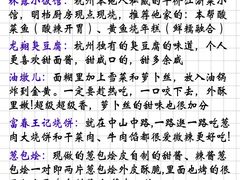 林路小饭馆：杭州本地人私藏的平价江浙菜小
馆，明档厨房现点现烧，推荐他家的：本帮酸
菜鱼（酸辣开胃）、黄鱼烧年糕（鲜糯融合）
龙翔臭豆腐：杭州独有的臭豆腐的味道，个人
更喜欢甜面酱，甜咸口的，甜多余咸
油墩儿：面糊里加上香菜和萝卜丝，放入油锅
炸到金黄。一定要趁热吃，一口咬下去，外酥
里嫩！超级超香，萝卜丝的甜味也很加分
富春王记烧饼：就在中山中路，一路逛一路吃葱
肉大烧饼和干菜肉、牛肉馅都很爱微辣更好吃！
葱包烩：现做的葱包烩皮自制的甜酱、辣酱葱
包烩一对即两片葱包烩外皮酥脆，里面也烤的很